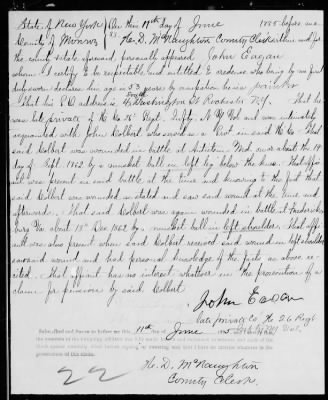 State of New York } On this 11th day of June 1885 before me
County of Monroe } ss. He. D. McNaughton County Clerk within and for
the county & state aforesaid, personally appeared John Eagan
whom I certify to be respectable and entitled to credence who being by me first
duly sworn declares him age is 53 years by occupation he is painter
That his P.O. address is 4 South Washington St Rochester N.Y. That he
was late private of Co. Regt. N.Y. Vol and was intimately
acquainted with John Colbert who served in a Regt in said Co. That
said Colbert was wounded in battle at Antietam Md. on or about the
day of Sept. 1862 by a musket ball in left leg below the knee. That affi-
ant was present in said battle at the time and knowing to the fact that
said Colbert was wounded as stated and saw said wound at the time and
afterwards. That said Colbert was again wounded in battle at Fredericks-
burg Va. about 13th Dec. 1862 by a musket ball in left shoulder. That affi-
ant was also present when said Colbert received said wound in left shoulder
saw said wound and had personal knowledge of the facts as above re-
cited. That affiant has no interest whatever in the prosecution of a
claim for pension by said Colbert
John Eagan
late private Co. 26 Regt
Vol.
11th June
22
He. D. McNaughton
County Clerk.